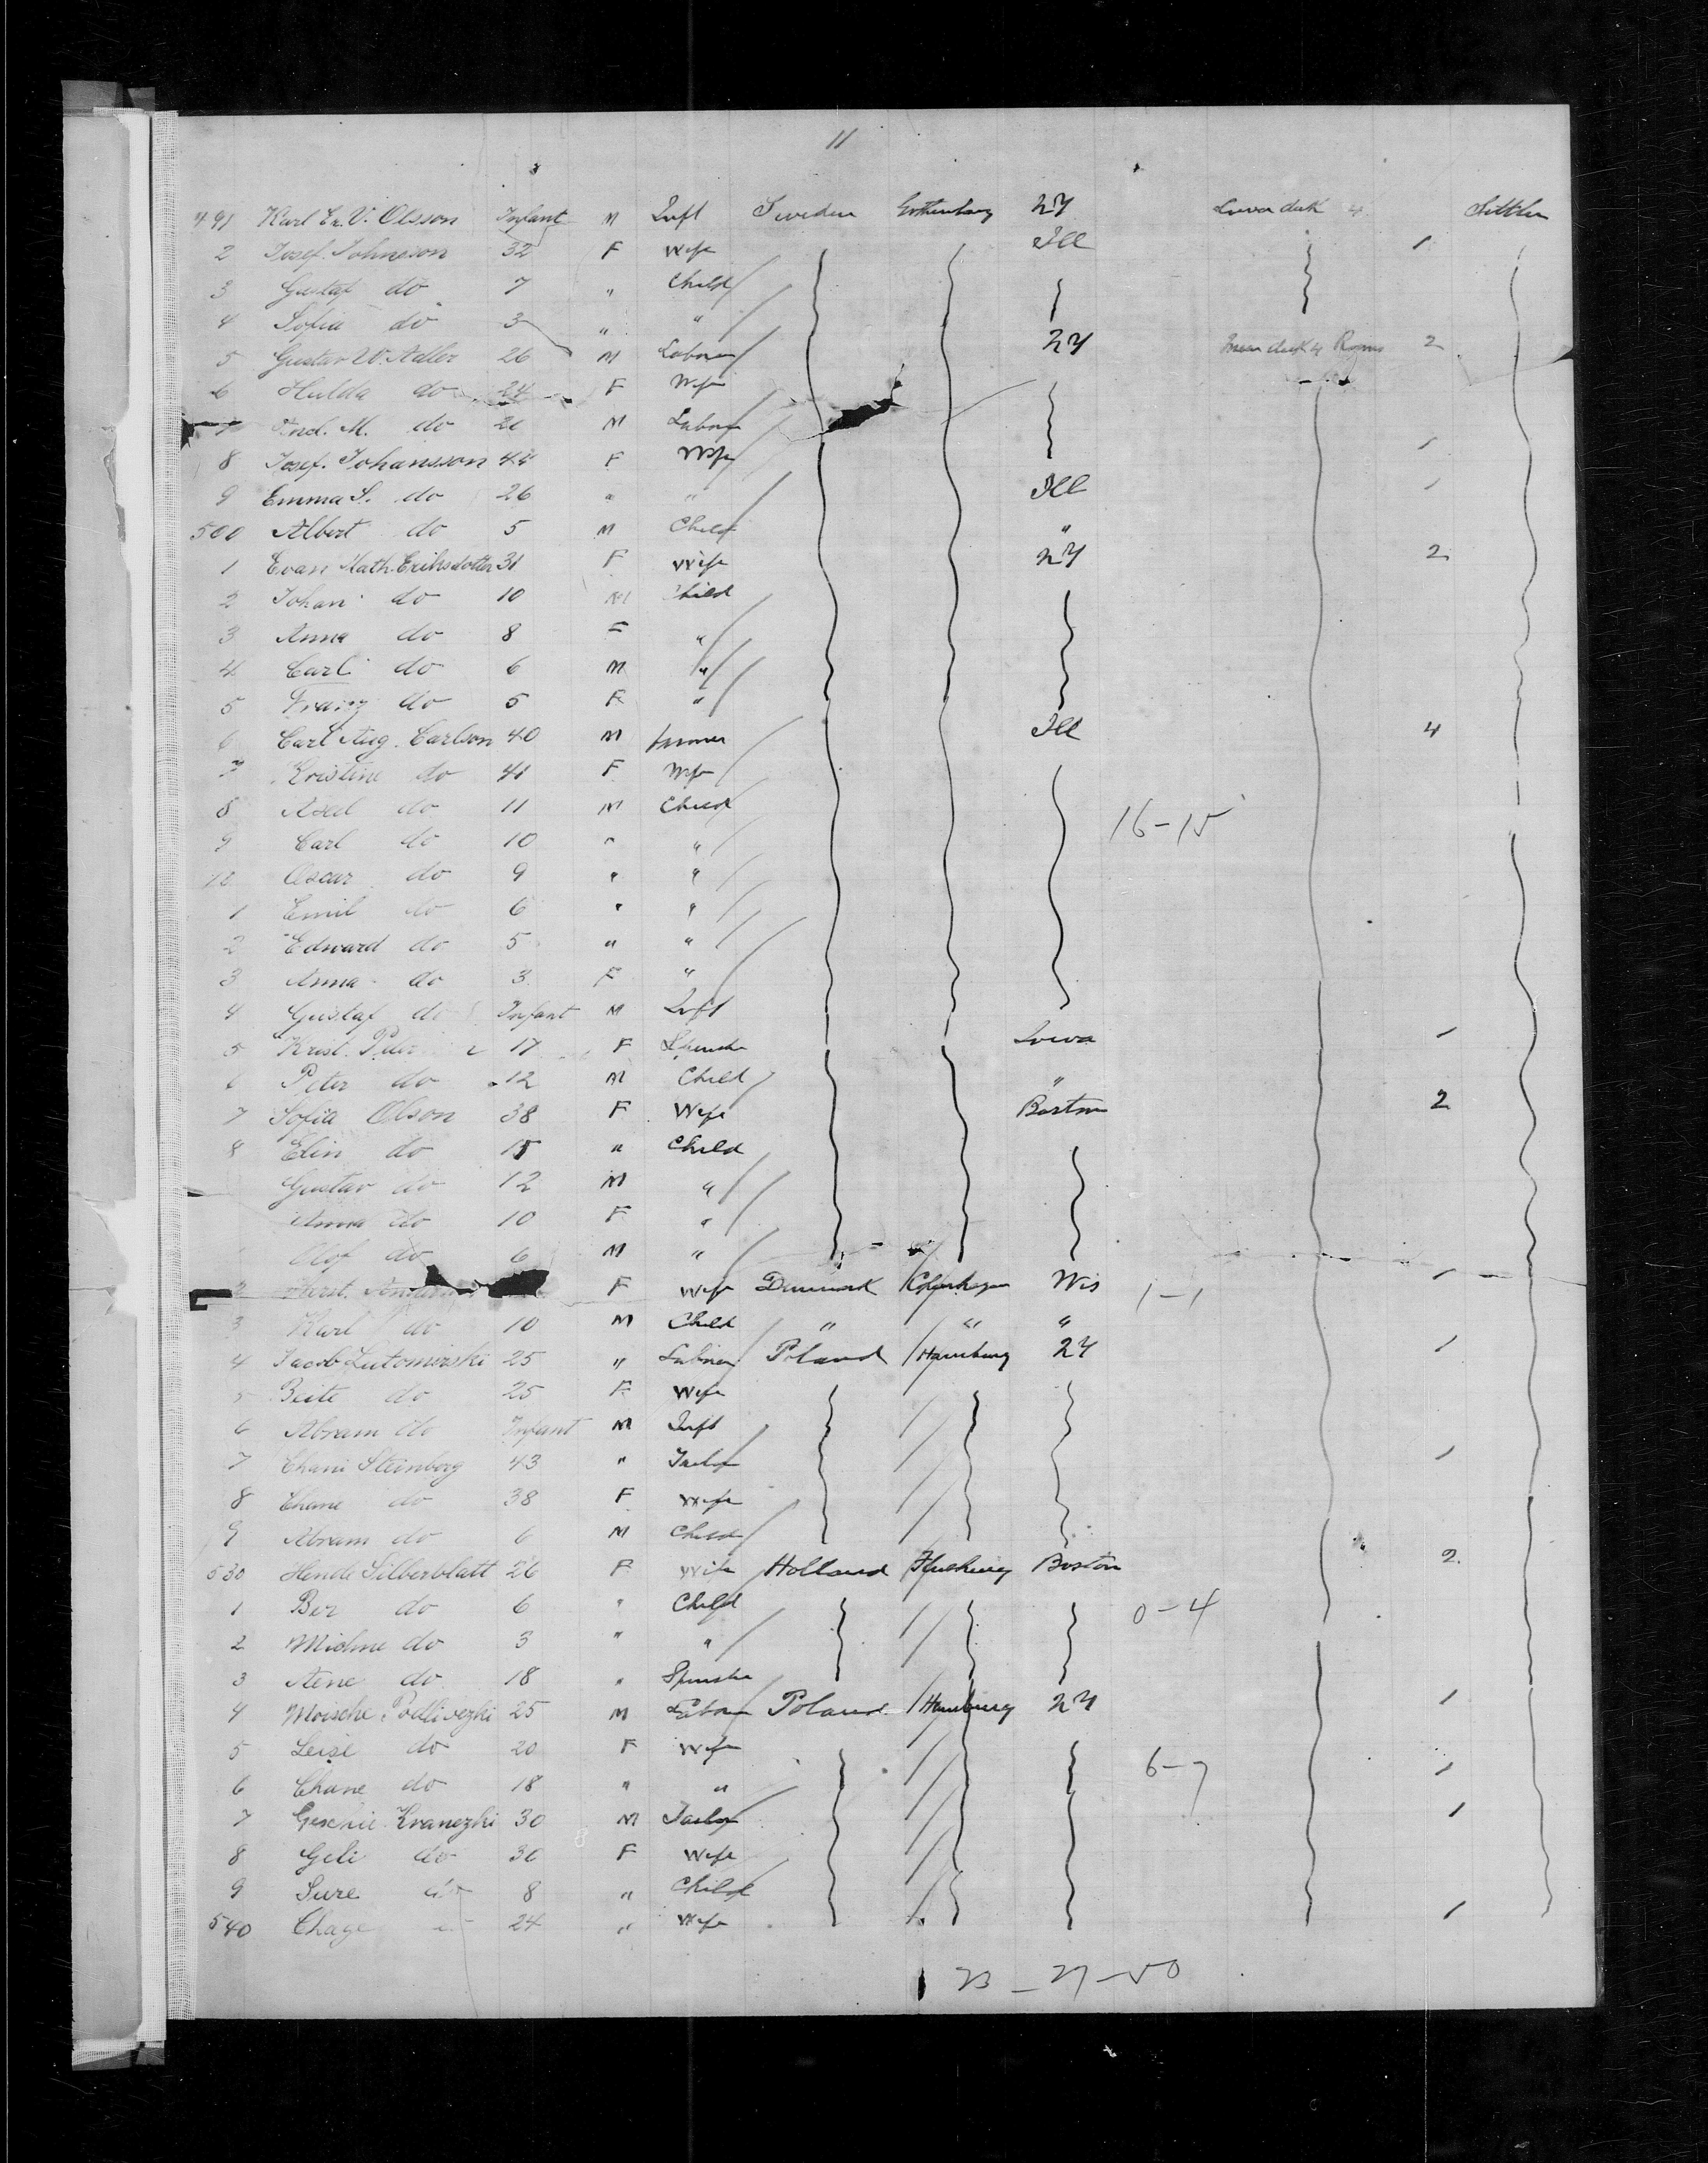 11
491 Karl En. V. Olsson Infant M Inft Sweden Gothenburg NY Lower deck 4 Settler
2 Josef. Johnsson 32 F Wife Ill 1
3 Gustaf do 7 " Child
4 Sofia do 3 " "
5 Gustav W. Adler 26 M Laborer NY deck 4 2
6 Hulda do 24 F Wife
7 And. M. do 20 M Labor
8 Josef. Johansson 44 F Wife 1
9 Emma S. do 26 " " Ill 1
500 Albert do 5 M Child "
1 Evan Kath. Eriksdotter 31 F Wife NY 2
2 Johan do 10 M Child
3 Anna do 8 F "
4 Carl do 6 M "
5 Franz do 5 F "
6 Carl Aug. Carlson 40 M Farmer Ill 4
7 Kristine do 41 F Wife
8 Axel do 11 M Child 16-15
9 Carl do 10 " "
10 Oscar do 9 " "
1 Emil do 6 " "
2 Edward do 5 " "
3 Anna do 3 F "
4 Gustaf do Infant M Inft
5 Krist. 17 F Spinster Iowa 1
6 Peter do 12 M Child "
7 Sofia Olson 38 F Wife Boston 2
8 Elin do 15 " Child
Gustav do 12 M "
Anna do 10 F "
Olof do 6 M "
2 F Wife Denmark Copenhagen Wis 1-1 1
3 Karl do 10 M Child " " "
4 Jacob Lutomirski 25 " Laborer Poland Hamburg NY 1
5 Beite do 25 F Wife
6 Abram do Infant M Inft
7 Chani Steinberg 43 " Tailor 1
8 Chane do 38 F Wife
9 Abram do 6 M Child
530 Hende Silberblatt 26 F Wife Holland Boston 2
1 Ber do 6 " Child 0-4
2 Michne do 3 " "
3 Aene do 18 " Spinster
4 Moische Podlivezki 25 M Labor Poland Hamburg NY 1
5 Leise do 20 F Wife
6 Chane do 18 " " 6-7 1
7 Geschie Kranezki 30 M Tailor 1
8 Geli do 30 F Wife
9 Sure do 8 " Child
540 Chaye 24 " Wife 1
23-27-50